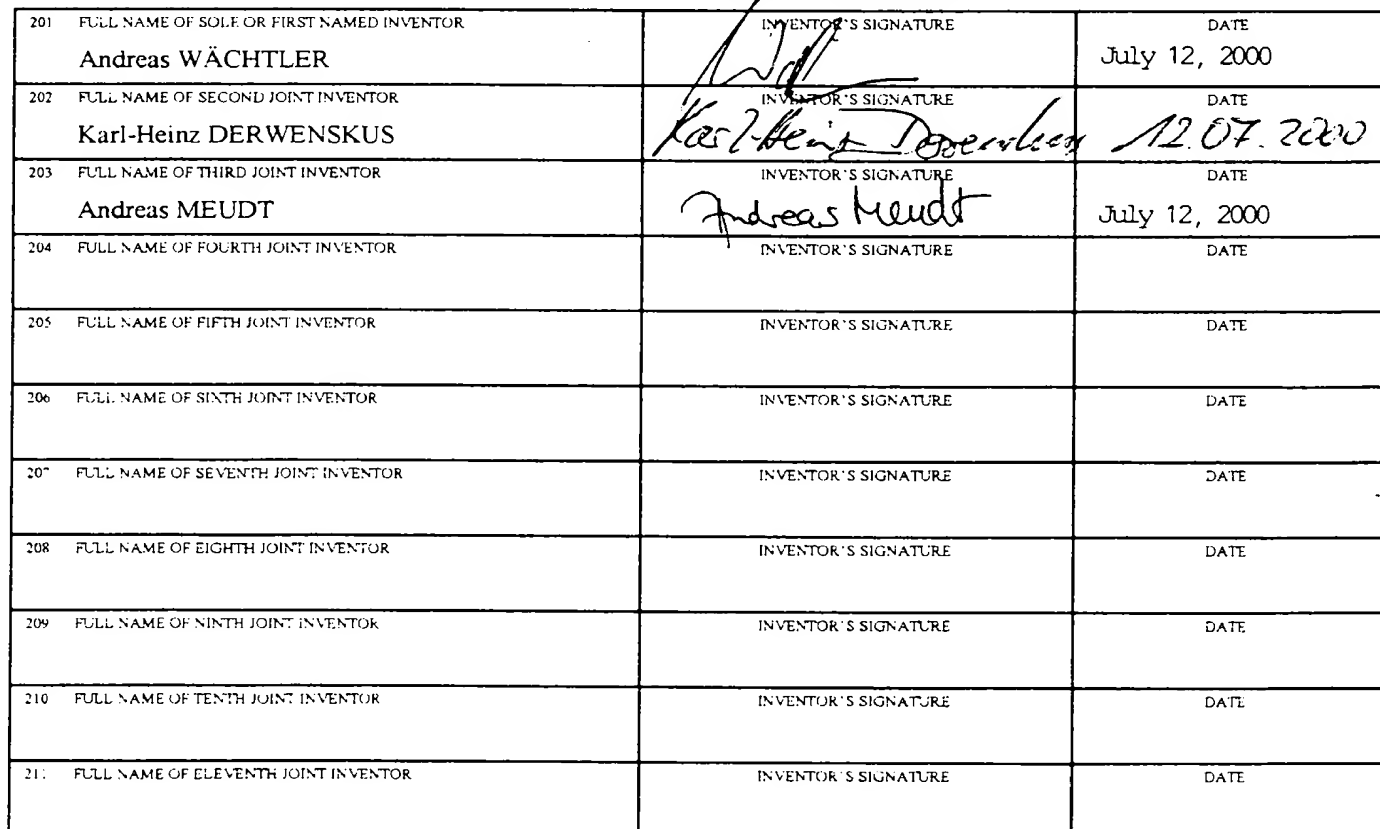 201 FULL NAME OF SOLE OR FIRST NAMED INVENTOR INVENTOR'S SIGNATURE DATE
Andreas WÄCHTLER July 12, 2000
202 FULL NAME OF SECOND JOINT INVENTOR INVENTOR'S SIGNATURE DATE
Karl-Heinz DERWENSKUS Karl-Heinz Derwenskus 12.07.2000
203 FULL NAME OF THIRD JOINT INVENTOR INVENTOR'S SIGNATURE DATE
Andreas MEUDT Andreas Meudt July 12, 2000
204 FULL NAME OF FOURTH JOINT INVENTOR INVENTOR'S SIGNATURE DATE
205 FULL NAME OF FIFTH JOINT INVENTOR INVENTOR'S SIGNATURE DATE
206 FULL NAME OF SIXTH JOINT INVENTOR INVENTOR'S SIGNATURE DATE
207 FULL NAME OF SEVENTH JOINT INVENTOR INVENTOR'S SIGNATURE DATE
208 FULL NAME OF EIGHTH JOINT INVENTOR INVENTOR'S SIGNATURE DATE
209 FULL NAME OF NINTH JOINT INVENTOR INVENTOR'S SIGNATURE DATE
210 FULL NAME OF TENTH JOINT INVENTOR INVENTOR'S SIGNATURE DATE
211 FULL NAME OF ELEVENTH JOINT INVENTOR INVENTOR'S SIGNATURE DATE